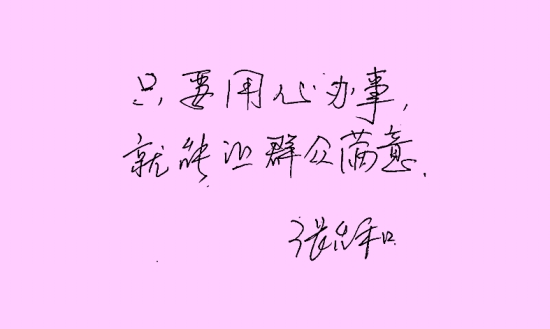 只要用心办事,
就能让群众满意.